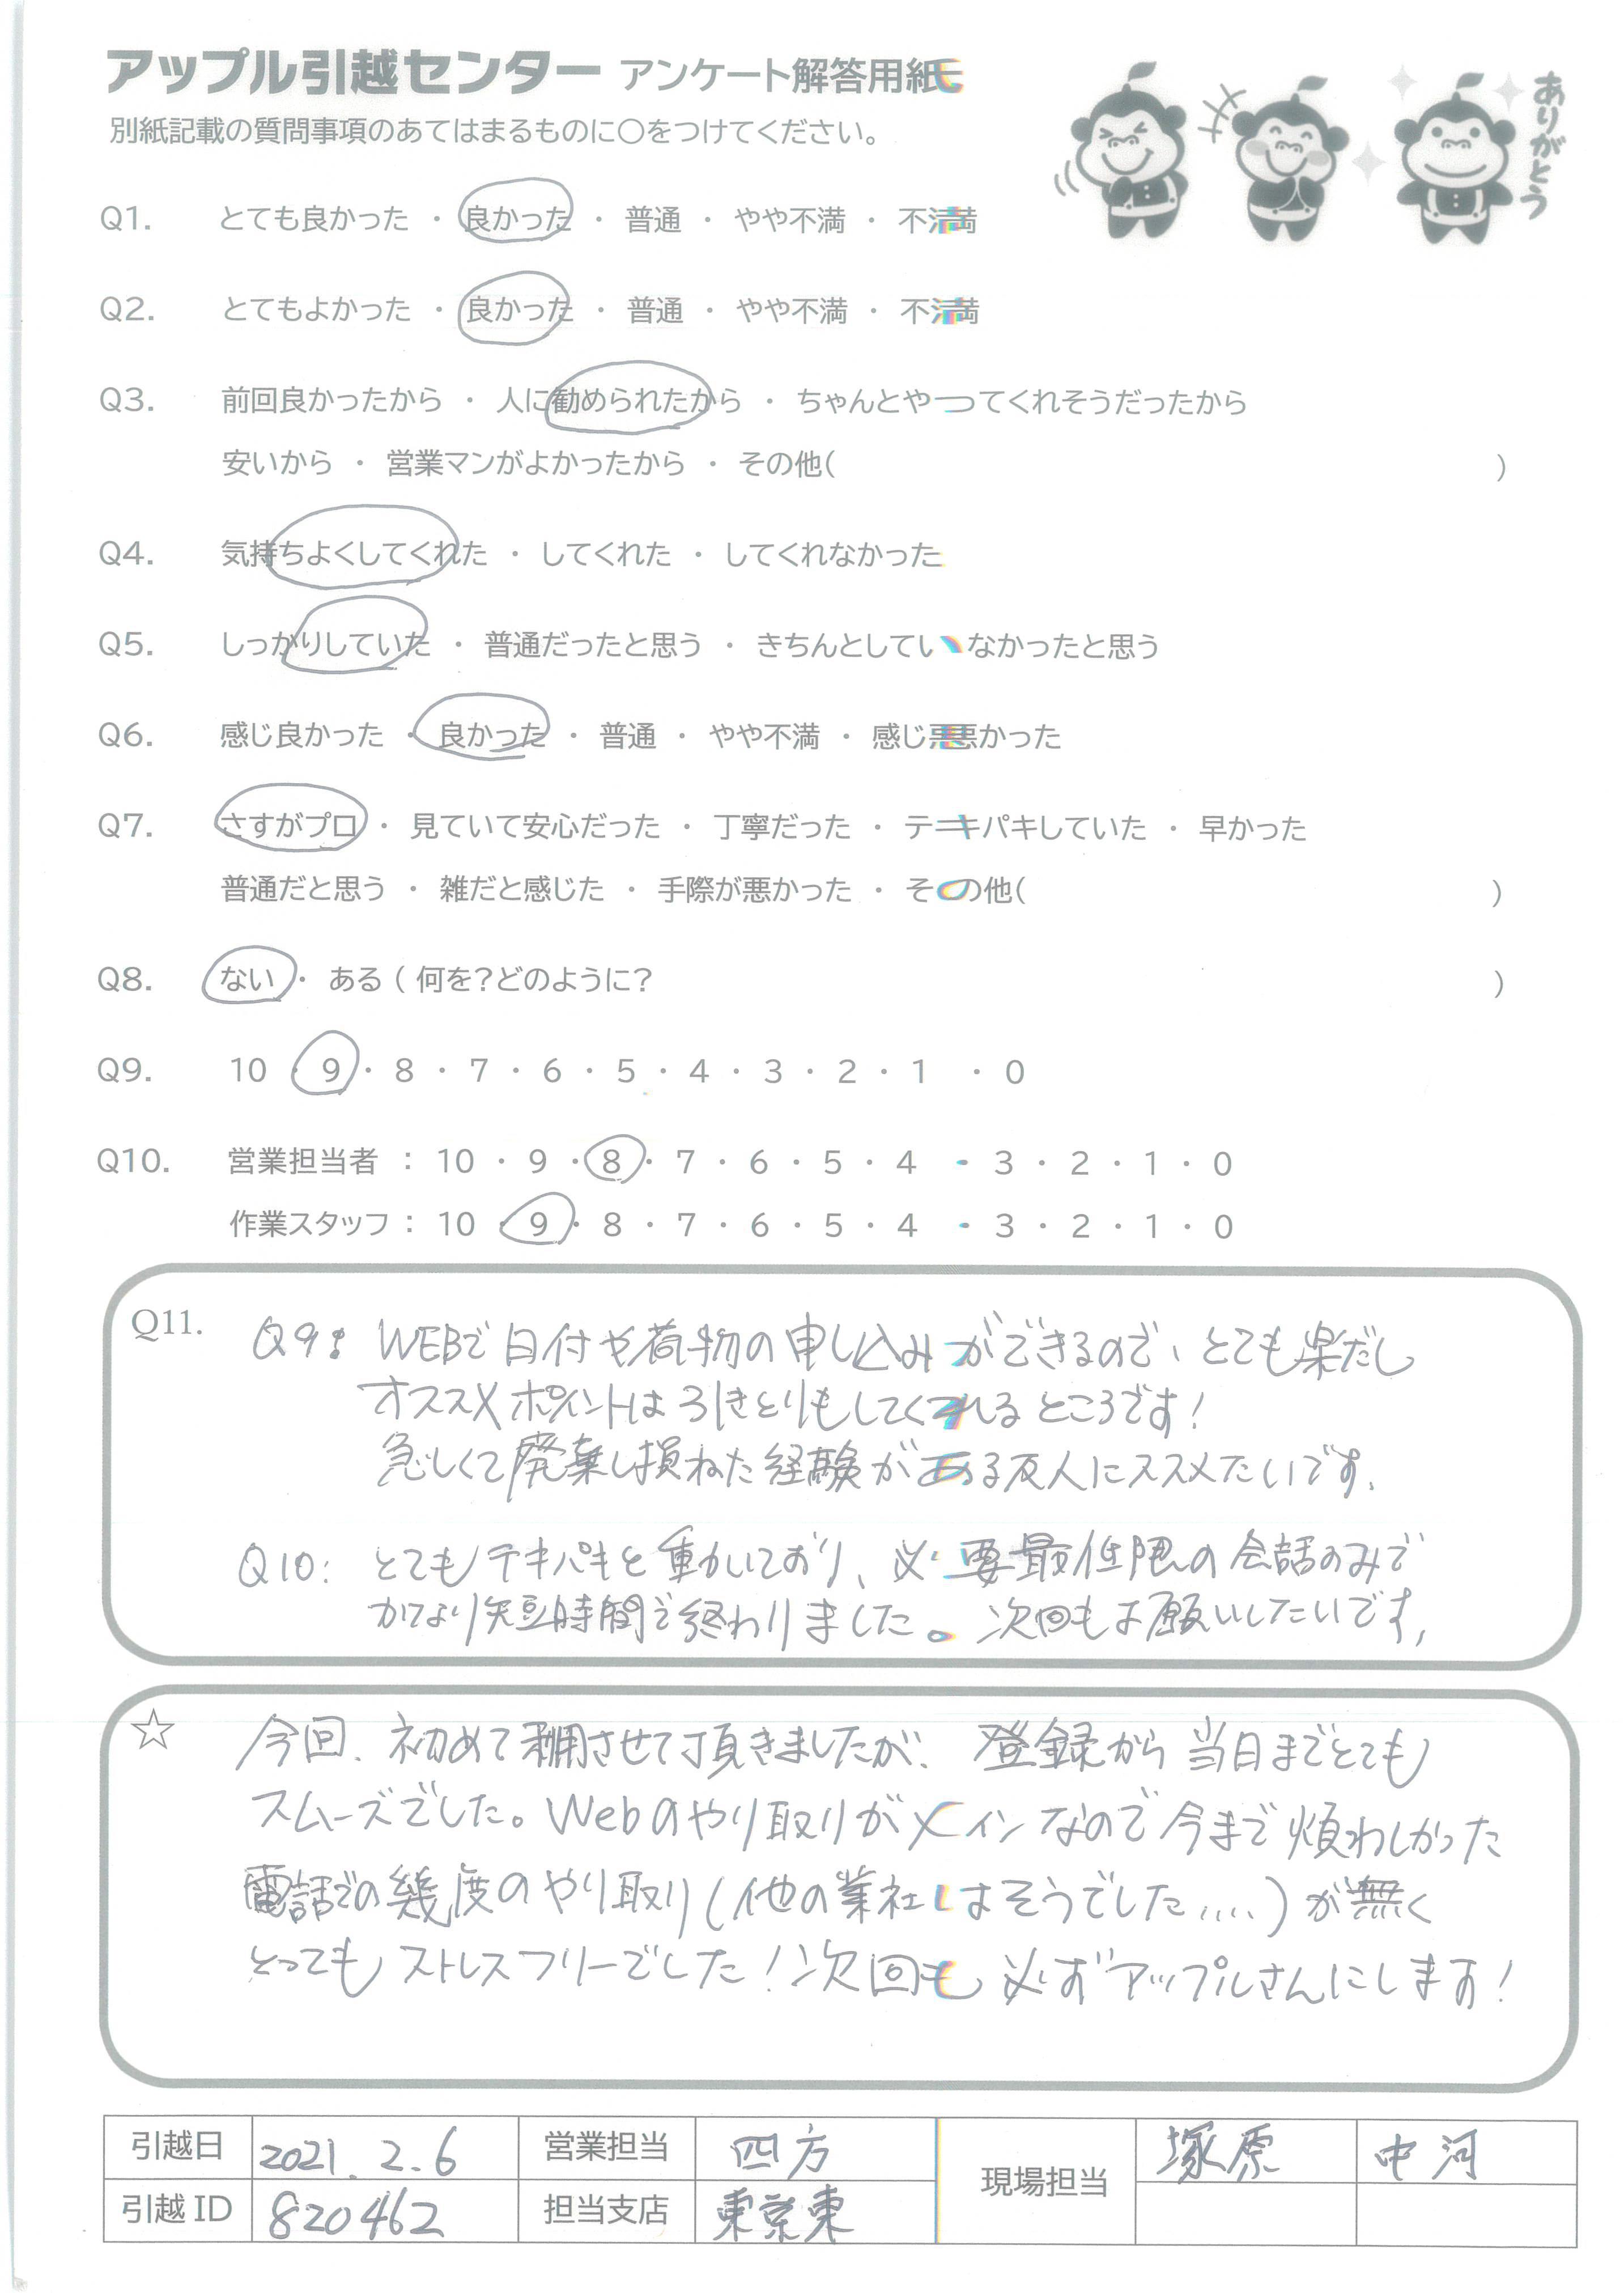 アップル引越センター アンケート解答用紙
別紙記載の質問事項のあてはまるものに○をつけてください。
ありがとう
Q1. とても良かった ・ 良かった ・ 普通 ・ やや不満 ・ 不満
Q2. とてもよかった ・ 良かった ・ 普通 ・ やや不満 ・ 不満
Q3. 前回良かったから ・ 人に勧められたから ・ ちゃんとやってくれそうだったから
安いから ・ 営業マンがよかったから ・ その他( )
Q4. 気持ちよくしてくれた ・ してくれた ・ してくれなかった
Q5. しっかりしていた ・ 普通だったと思う ・ きちんとしていなかったと思う
Q6. 感じ良かった ・ 良かった ・ 普通 ・ やや不満 ・ 感じ悪かった
Q7. さすがプロ ・ 見ていて安心だった ・ 丁寧だった ・ テキパキしていた ・ 早かった
普通だと思う ・ 雑だと感じた ・ 手際が悪かった ・ その他( )
Q8. ない ・ ある ( 何を?どのように? )
Q9. 10 ・ 9 ・ 8 ・ 7 ・ 6 ・ 5 ・ 4 ・ 3 ・ 2 ・ 1 ・ 0
Q10. 営業担当者 : 10 ・ 9 ・ 8 ・ 7 ・ 6 ・ 5 ・ 4 ・ 3 ・ 2 ・ 1 ・ 0
作業スタッフ : 10 ・ 9 ・ 8 ・ 7 ・ 6 ・ 5 ・ 4 ・ 3 ・ 2 ・ 1 ・ 0
Q11. Q9: WEBで日付や荷物の申し込みができるので、とても楽だし
オススメポイントは引きとりもしてくれるところです!
急しくて廃棄し損ねた経験がある友人にススメたいです。
Q10: とてもテキパキと動いており、必要最低限の会話のみで
かなり短時間で終わりました。次回もお願いしたいです。
☆ 今回、初めて利用させて頂きましたが、登録から当日までとても
スムーズでした。Webのやり取りがメインなので今まで煩わしかった
電話での幾度のやり取り(他の業社はそうでした....)が無く
とってもストレスフリーでした!次回も必ずアップルさんにします!
引越日 2021.2.6 営業担当 四方 現場担当 塚原 中河
引越ID 820462 担当支店 東京東